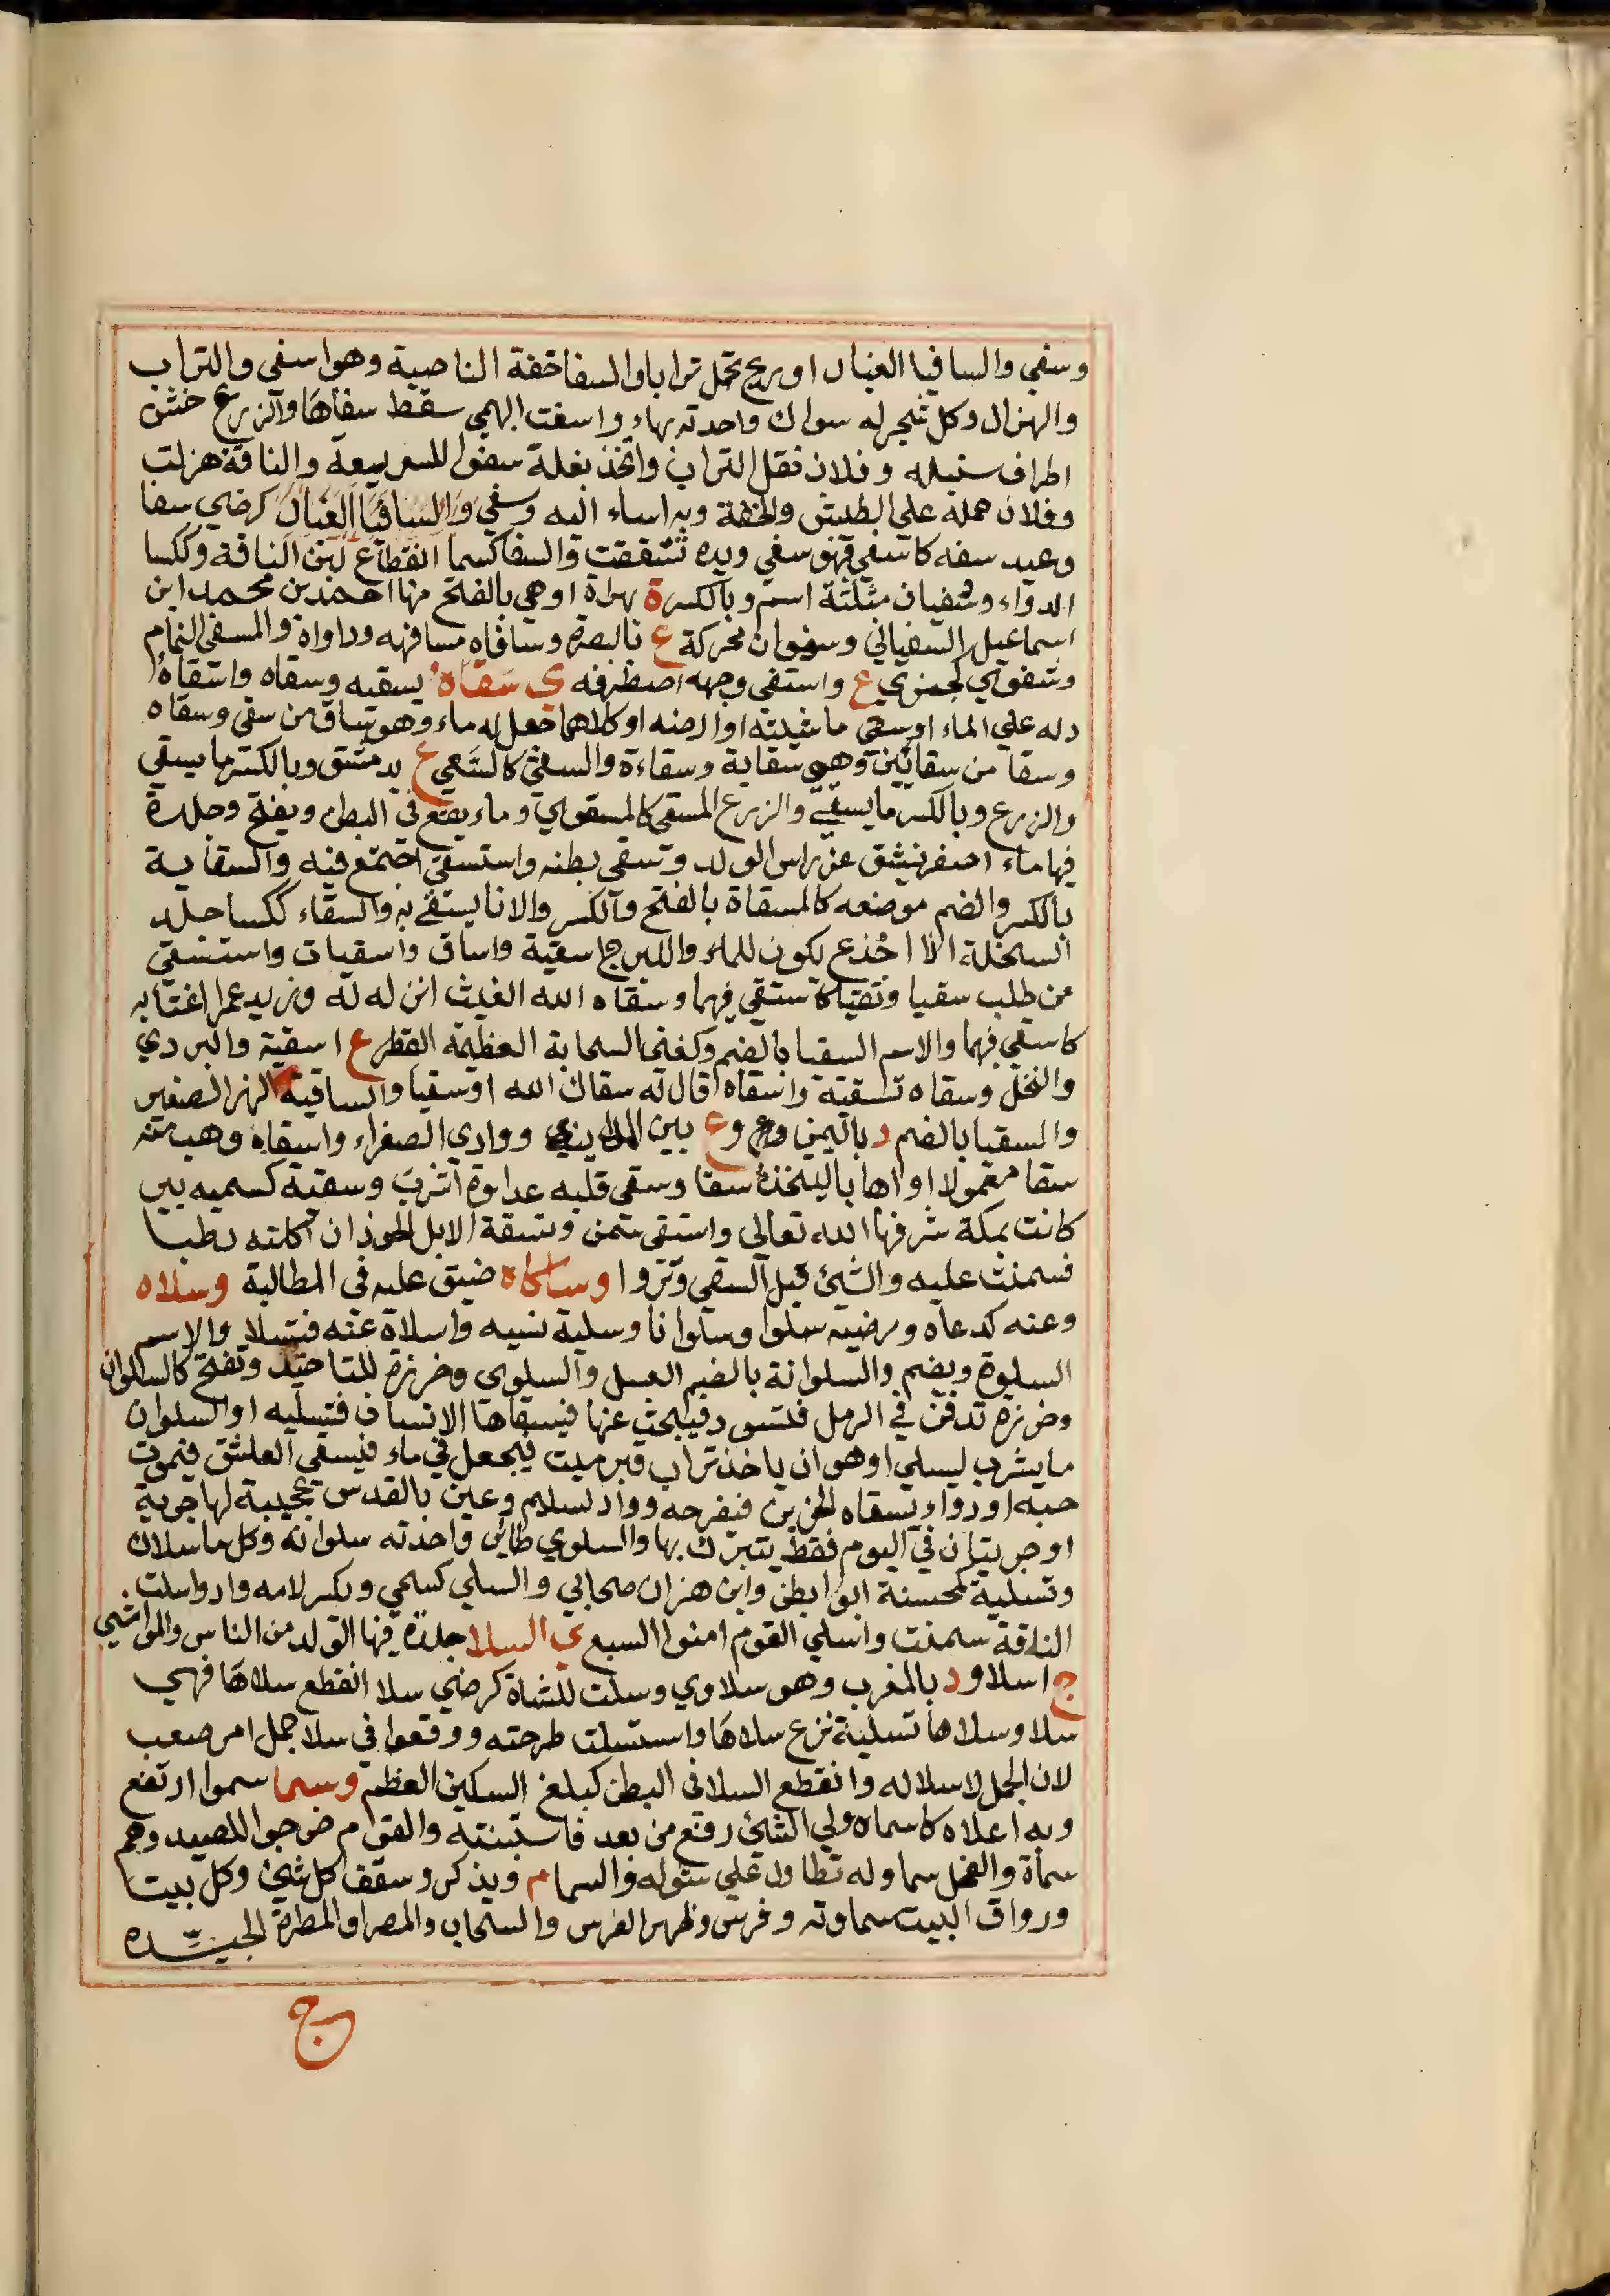 وسفي والسافيا الغبار او ريح تحمل ترابا والسفا خفة الناصية وهو اسفى والتراب
والهزال وكل شجر له سواك واحدته بهاء واسفت البهمي سقط سفاها والزرع خشن
اطراف سنبله وفلان نقل التراب واتخذ بغلة سفوا للسريعة والناقة هزلت
وفلان حمله على الطيش والخفة وبه اساء اليه وسفي والسافيا الغبار كرضي سفا
وعيد سفه كاسفي فهو سفي ويده تشققت والسفا كسما انقطاع لبن الناقة وككسا
الدواء وسفيان مثلثة اسم وبالكسر ة بهراة او هي بالفتح منها احمد بن محمد ابن
اسماعيل السفياني وسفوان محركة ع بالبصرة وسافاه مسافهه وداواه والمسفى النمام
وسفوي كجمزي ع واستفى وجهه اصطرفه ي سقاه يسقيه وسقاه واسقاه
دله على الماء او سقى ماشيته او ارضه او كلاهما جعل له ماء وهو ساق من سقى وسقاه
وسقا من سقايين وهي سقاية وسقاءة والسقى كالسعي ع بدمشق وبالكسر ما يسقى
والزرع وبالكسر ما يسقى والزرع المسقى كالمسقوي وماء يقع في البطن ويفتح وجلدة
فيها ماء اصفر ينشق عن راس الولد وسقى بطنه واستسقى اجتمع فيه والسقاية
بالكسر والضم موضعه كالمسقاة بالفتح والكسر والانا يستقى به والسقاء ككسا جلد
السخلة اذا اجذع يكون للماء واللبن ج اسقية واساق واسقيات واستسقي
من طلب سقيا وتقياة ستقي فيهما وسقاه الله الغيث انزله له وزيد عمرا اغتابه
كاسقي فيهما والاسم السقيا بالضم وكغني السحابة العظيمة القطر ع اسقية والبردي
والنخل وسقاه تسقية واسقاه قال له سقاك الله او سقيا والساقية النهر الصغير
والسقيا بالضم د باليمن وع وع بين المدينة ووادي الصفراء واسقاه وهب منه
سقا معمولا او اهابا ليتخذه سقا وسقى قلبه عداوة اشرب وسقية كسميه بير
كانت بمكة شرفها الله تعالى واستقى سمن وتسقة الابل الحوذان اكلته رطبا
فسمنت عليه والشئ قبل السقي وتروا وساكاه ضيق عليه في المطالبة وسلاه
وعنه كدعاه ورضيه سلوا وسلوانا وسلية نسيه واسلاه عنه فتسلا والاسم
السلوة ويضم والسلوانة بالضم العسل والسلوى وخرزة للتاخيذ وتفتح كالسلوان
وخرزة تدفن في الرمل فتسود فيبحث عنها فيسقاها الانسان فتسليه او السلوان
ما يشرب ليسلي او هو ان ياخذ تراب قبر ميت يجعل في ماء فيسقى العاشق فيموت
حبه او دواء يسقاه الحزين فيفرحه وواد لسليم وعين بالقدس عجيبة لها جرية
او جريتان في اليوم فقط يتبرك بها والسلوي طاير واحدته سلوانه وكل ما سلاك
وتسلية كمحسنة ابوا بطن وابن هزان صحابي والسلي كسمي وبكسر لامه واد واسلت
الناقة سمنت واسلي القوم امنوا السبع ي السلا جلدة فيها الولد من الناس والمواشي
ج اسلا ود بالمغرب وهو سلاوي وسلت للشاة كرضي سلا انقطع سلاها فهي
سلا وسلاها تسلية نزع سلاها واستسلت طرحته ووقعوا في سلا جمل امر صعب
لان الجمل لا سلا له وانقطع السلا في البطن كبلغ السكين العظم وسما سموا ارتفع
وبه اعلاه كاسماه ولي الشئ رفع من بعد فاستبنته والقوم خرجوا للصيد وهم
سماة والفحل سما وله تطاول على شوله والسما م ويذكر وسقف كل شئ وكل بيت
ورواق البيت سماوته وفرس وظهر الفرس والسحاب والمصر او المطرة الجيدة
ج